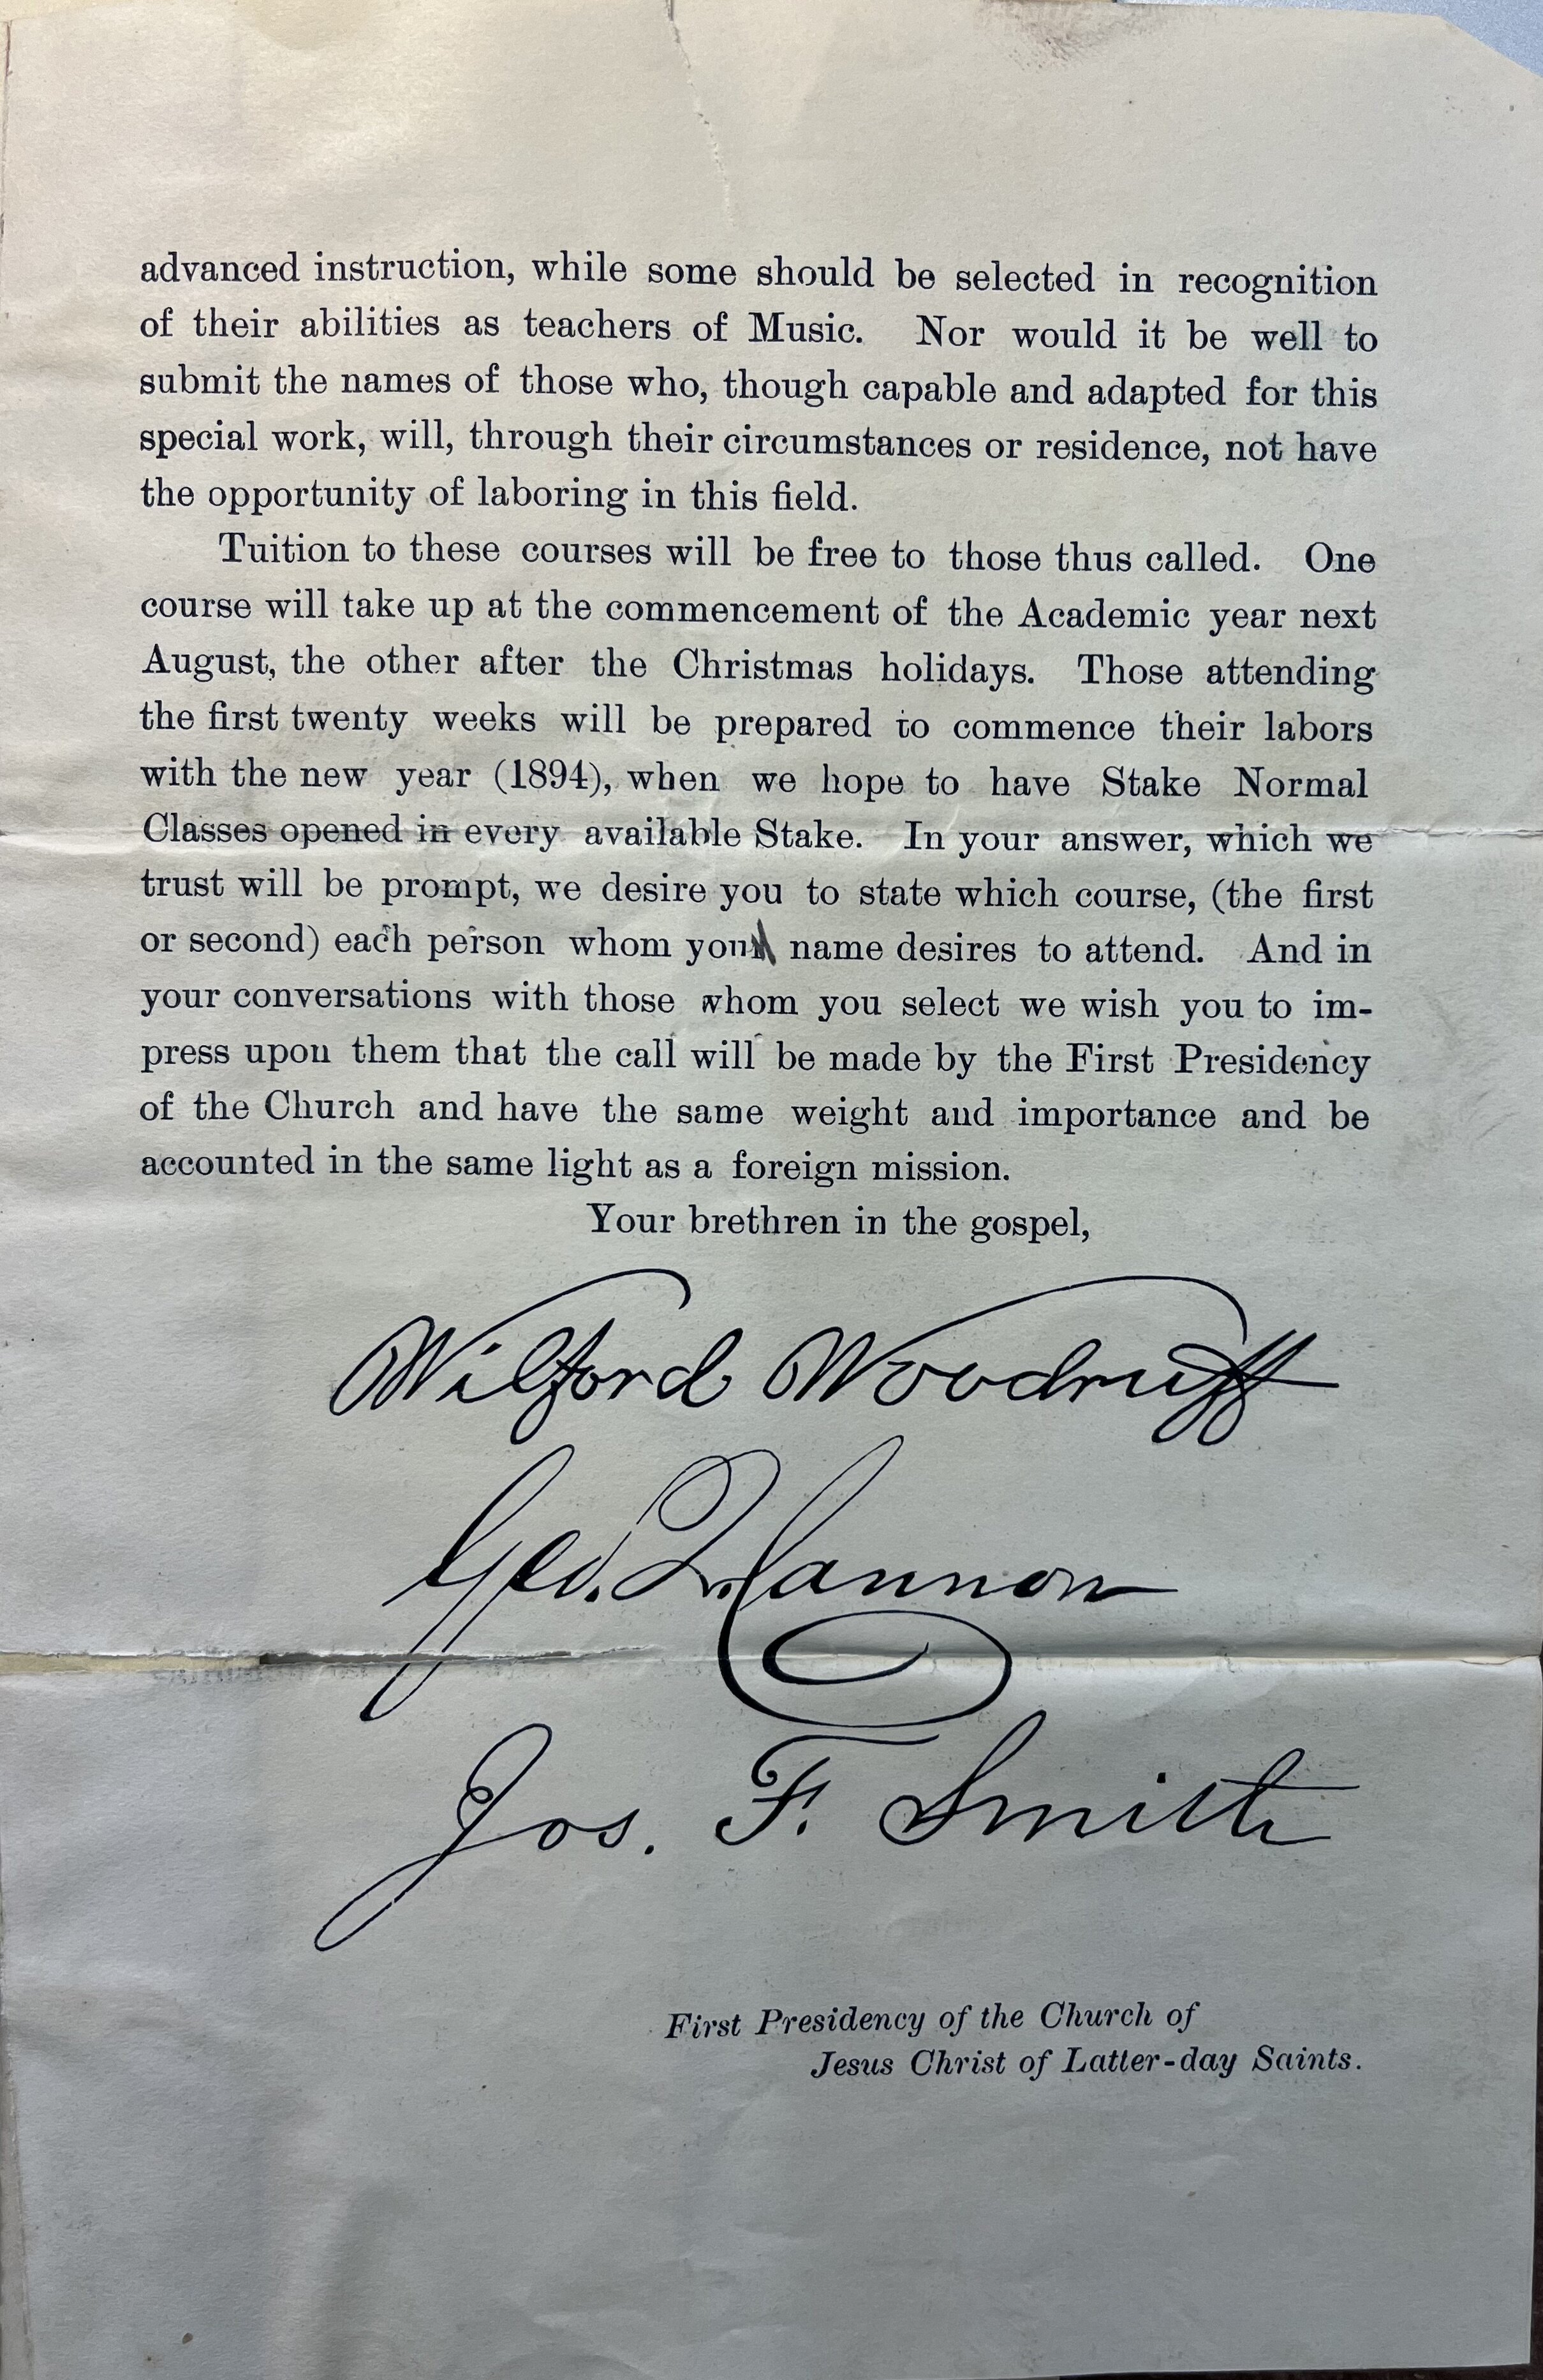 advanced instruction, while some should be selected in recognition
of their abilities as teachers of Music. Nor would it be well to
submit the names of those who, though capable and adapted for this
special work, will, through their circumstances or residence, not have
the opportunity of laboring in this field.
Tuition to these courses will be free to those thus called. One
course will take up at the commencement of the Academic year next
August, the other after the Christmas holidays. Those attending
the first twenty weeks will be prepared to commence their labors
with the new year (1894), when we hope to have Stake Normal
Classes opened in every available Stake. In your answer, which we
trust will be prompt, we desire you to state which course, (the first
or second) each person whom you name desires to attend. And in
your conversations with those whom you select we wish you to im-
press upon them that the call will be made by the First Presidency
of the Church and have the same weight and importance and be
accounted in the same light as a foreign mission.
Your brethren in the gospel,
Wilford Woodruff
Geo. Q. Cannon
Jos. F. Smith
First Presidency of the Church of
Jesus Christ of Latter-day Saints.